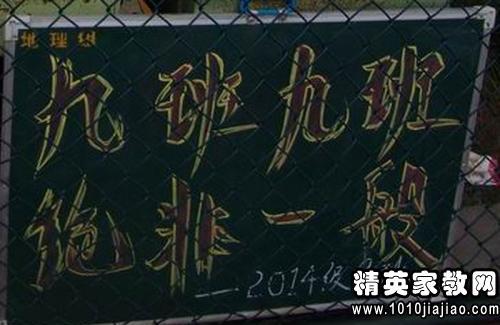 地理组
九班九班
绝非一般
—2014级
精英家教网
www.1010jiajiao.com